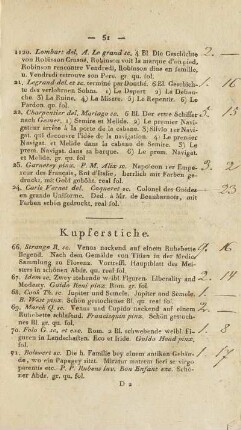 — 51 —
1120. Lombart del. A. Le grand sc. 4 Bl. Die Geschichte
von Robinson Crusoe, Robinson voit la marque d'un pied.
Robinson rencontre Vendredi, Robinson dine en famille,
u. Vendredi retrouve son Pere. gr. qu. fol. 2. —
21. Legrand del. et sc. terminé par Douthé. 6 Bl. Geschich-
te des verlohrnen Sohns. 1) Le Depart 2) La Debau-
che 3) La Ruine. 4) La Misere. 5) Le Repentir. 6) Le
Pardon. qu. fol. 1. 16
22. Charpentier del. Mariage sc. 6 Bl. Der erste Schiffer
nach Gesner. 1) Semire et Melide. 2) Le premier Navi-
gateur arrive à la porte de la cabane. 3) Silvio 1er Navi-
gat. qui decouvre l'idée de la Navigation. 4) Le premier
Navigat. et Melide dans la cabane de Semire. 5) Le
prem. Navigat. dans sa barque. 6) Le prem. Navigat.
et Melide. gr. qu. fol. 3. 15
23. Garnerey pinx. P. M. Alix sc. Napoleon 1er Empe-
reur des François, Roi d'Italie, herrlich mit Farben ge-
druckt, mit Gold gehöht. real fol. 2. —
24. Carle Vernet del. Coqueret sc. Colonel des Guides
en grande Uniforme. Ded. à Mr. de Beauharnois, mit
Farben schön gedruckt, real fol. 23
Kupferstiche.
66. Strange R. sc. Venus nackend auf einem Ruhebette
liegend. Nach dem Gemälde von Titian in der Medici
Sammlung zu Florenz. Vortrefl. Hauptblatt des Mei-
sters in schönen Abdr. gr. fol. 9. 16
67. Idem sc. Zwey stehende weibl Figuren. Liberality and
Modesty. Guido Reni pinx. Rom. gr. fol. 2. 14
68. Cook Th. sc. Jupiter und Semele. Jupiter and Semele.
B. West pinx. Schön gestochenes Bl. gr. qu. real fol. 1.
69. March Q. sc. Venus und Cupido nackend auf einem
Ruhebette schlafend. Franciscquin pinx. Schön gestoch-
nes Bl. gr. qu. fol. 2. —
70. Folo G. sc. et exc. Rom. 2 Bl. schwebende weibl Fi-
guren in Landschaften. Eco et Iride. Guido Head pinx.
fol. 1. 8
71. Bolswert sc. Die h. Familie bey einem antiken Gebäu-
de, wo ein Papagey sitzt. Miratur natura fieri se virgo
parentis etc. P. P. Rubens inv. Bon Enfant exc. Schö-
ner Abdr. gr. qu. fol. 1. 17
D 2